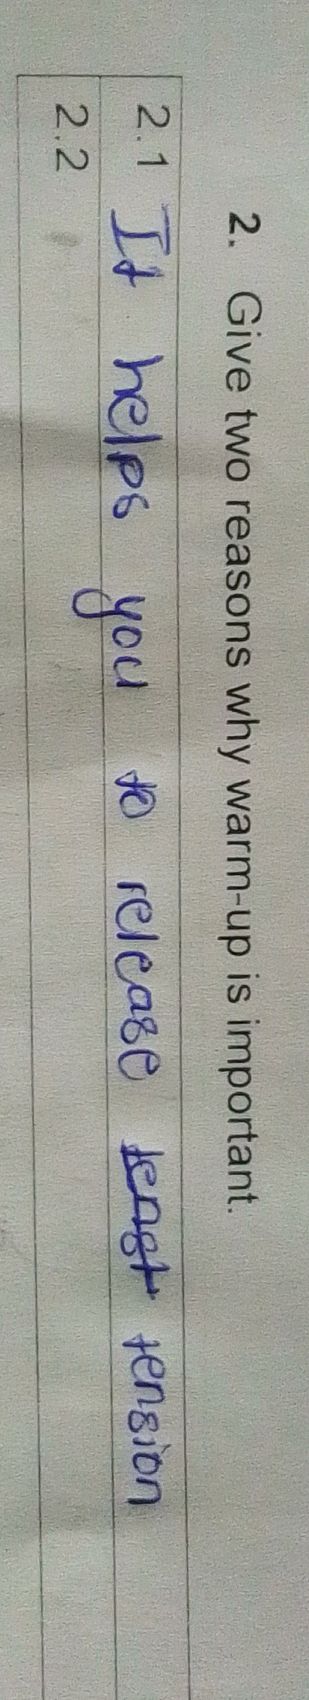 2. Give two reasons why warm-up is important.
2.1 It helps you to release tenst tension
2.2